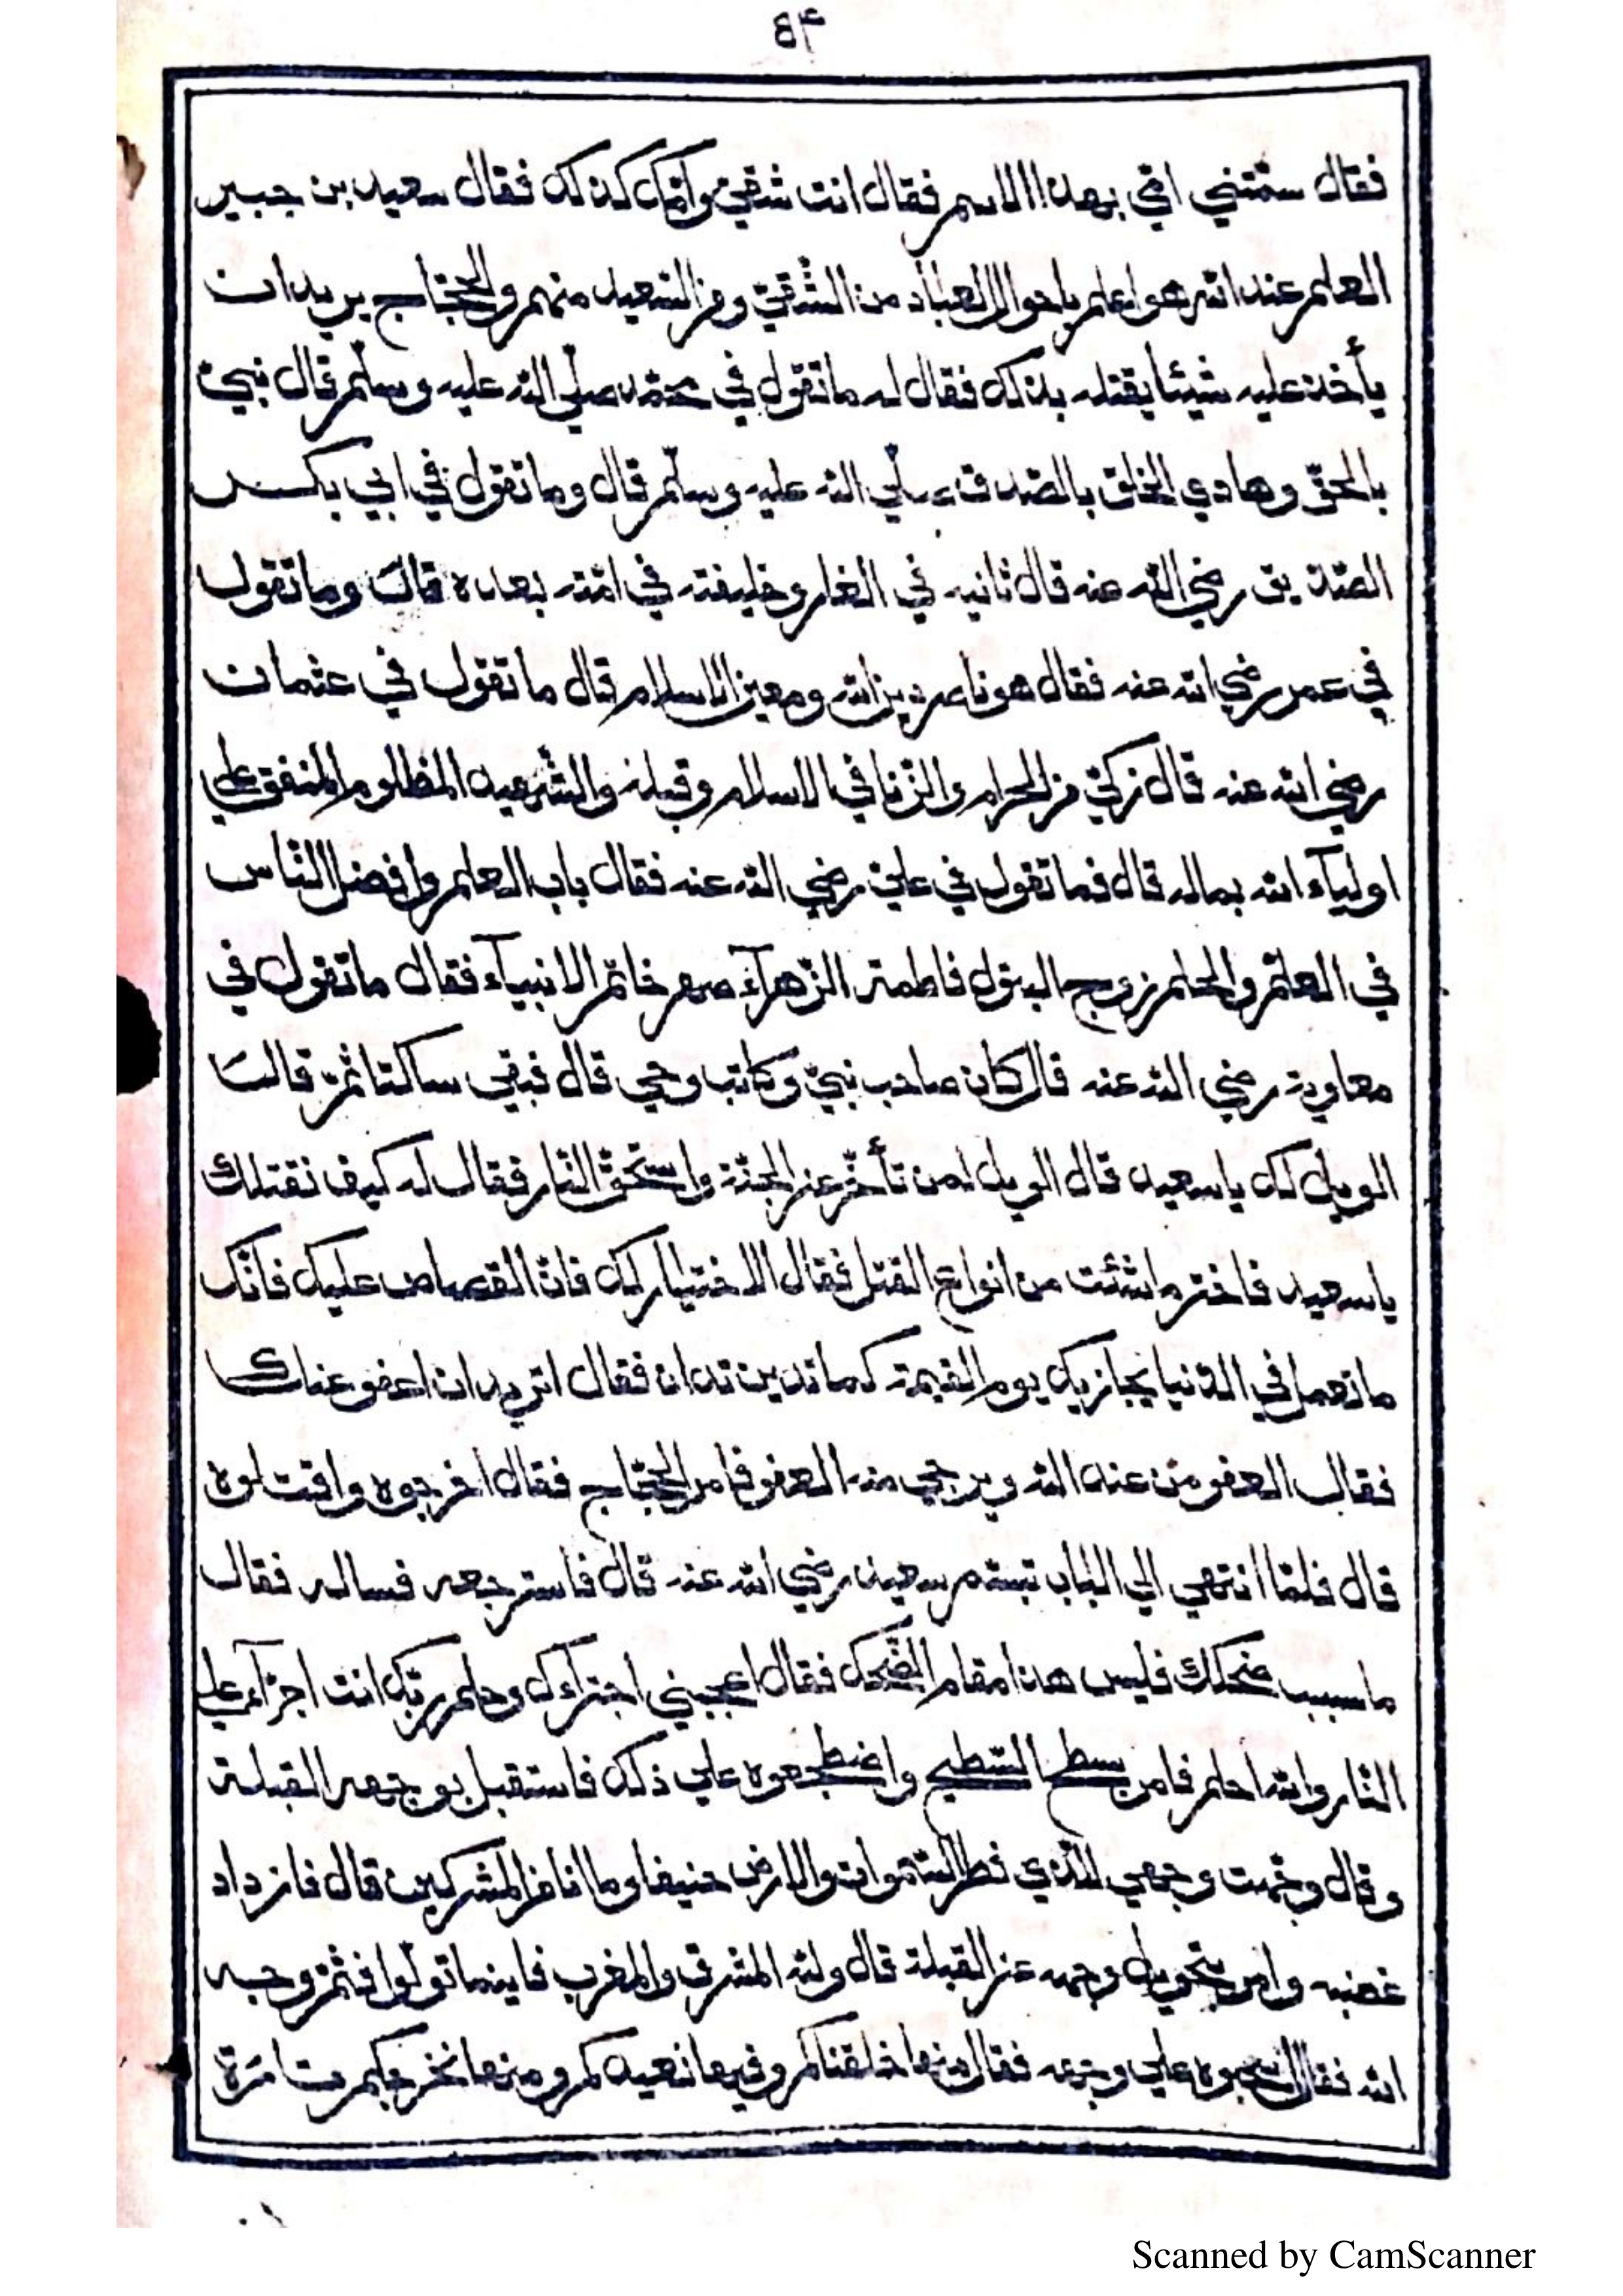 ۶۴
فقال سمّتني امّي بهذا الاسم فقال انت شقيّ وامّك كذلك فقال سعيد بن جبير
العلم عند الله هو اعلم باحوال العباد من الشّقيّ ومن السّعيد منهم والحجّاج يريد ان
يأخذ عليه شيئا يقتله بذلك فقال له ما تقول في محمّد صلّي الله عليه وسلّم قال نبيّ
بالحقّ وهادي الخلق بالصّدق صلّي الله عليه وسلّم قال وما تقول في ابي بكر
الصّدّيق رضي الله عنه قال ثانيه في الغار وخليفته في امّته بعده قال وما تقول
في عمر رضي الله عنه فقال هو ناصر دين الله ومعين الاسلام قال ما تقول في عثمان
رضي الله عنه قال زكيّ من الحرام والزّنا في الاسلام وقبله والشّهيد المظلوم المنفق علي
اوليآء الله بماله قال فما تقول في عليّ رضي الله عنه فقال باب العلم وافضل النّاس
في العلم والحلم زوج البتول فاطمة الزّهرآء صهر خاتم الانبيآء فقال ما تقول في
معاوية رضي الله عنه قال كان صاحب نبيّ وكاتب وحي قال فبقي ساكتا ثمّ قال
الويل لك يا سعيد قال الويل لمن تأخّر عن الجنّة واستحقّ النّار فقال له كيف نقتلك
يا سعيد فاختر ما شئت من انواع القتل فقال الاختيار لك فانّ القصاص عليك فانّك
ما تعمل في الدّنيا يجازيك يوم القيمة كما تدين تدان فقال اتريد ان اعفو عنك
فقال العفو من عند الله ويرجي منه العفو فامر الحجّاج فقال اخرجوه واقتلوه
قال فلمّا انتهي الي الباب تبسّم سعيد رضي الله عنه قال فاسترجعه فساله فقال
ما سبب ضحكك فليس هذا مقام الضّحك فقال اعجبني اجترآءك وحلم ربّك انت اجرآء علي
النّار والله احلم فامر بسطح السّطيح واضطجعوه علي ذلك فاستقبل بوجهه القبلة
وقال وجّهت وجهي للّذي فطر السّموات والارض حنيفا وما انا من المشركين قال فازداد
غضبه وامر بتحويل وجهه عن القبلة قال ولله المشرق والمغرب فاينما تولّوا فثمّ وجه
الله فقال علي وجهه فقال منها خلقناكم وفيها نعيدكم ومنها نخرجكم تارة
Scanned by CamScanner